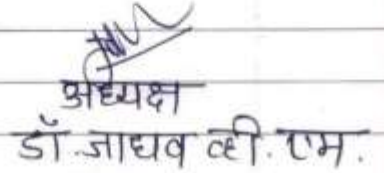 अध्यक्ष
डॉ. जाधव व्ही. एम.